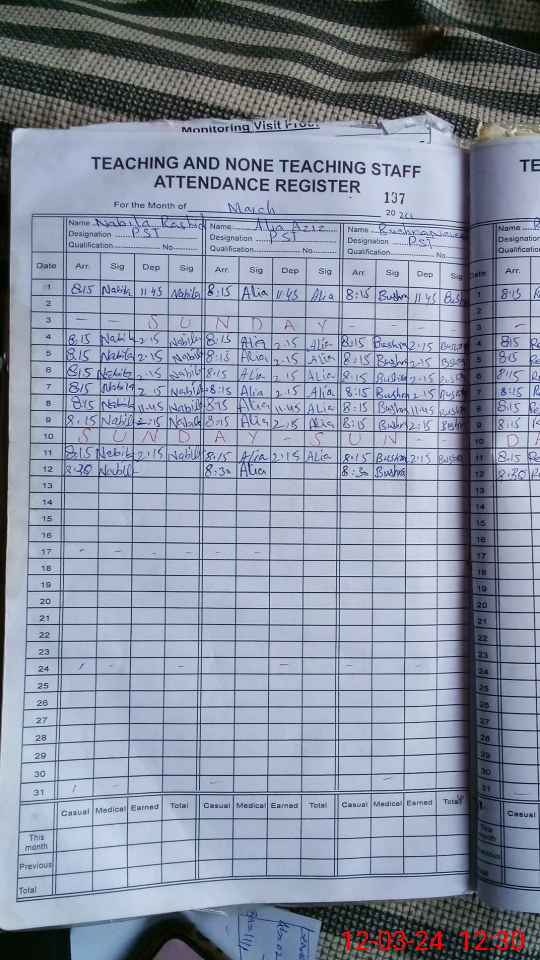 Monitoring Visit
TEACHING AND NONE TEACHING STAFF
ATTENDANCE REGISTER
137
For the Month of March 20
Name Nabila Rashid Name Alia Aziz Name Bushra
Designation PST Designation PST Designation PST
Qualification No Qualification No Qualification No
Date Arr. Sig Dep Sig Arr. Sig Dep Sig Arr. Sig Dep Sig
1 8:15 Nabila 11:45 Nabila 8:15 Alia 11:45 Alia 8:15 Bushra 11:45 Bush
2
3 - - S U N D A Y - - - -
4 8:15 Nabila 2:15 Nabila 8:15 Alia 2:15 Alia 8:15 Bushra 2:15 Bushra
5 8:15 Nabila 2:15 Nabila 8:15 Alia 2:15 Alia 8:15 Bushra 2:15 Bushra
6 8:15 Nabila 2:15 Nabila 8:15 Alia 2:15 Alia 8:15 Bushra 2:15 Bushra
7 8:15 Nabila 2:15 Nabila 8:15 Alia 2:15 Alia 8:15 Bushra 2:15 Bushra
8 8:15 Nabila 11:45 Nabila 8:15 Alia 11:45 Alia 8:15 Bushra 11:45 Bushra
9 8:15 Nabila 2:15 Nabila 8:15 Alia 2:15 Alia 8:15 Bushra 2:15 Bushra
10 S U N D A Y - S U N - -
11 8:15 Nabila 2:15 Nabila 8:15 Alia 2:15 Alia 8:15 Bushra 2:15 Bushra
12 8:30 Nabila 8:30 Alia 8:30 Bushra
13
14
15
16
17 - - - - - -
18
19
20
21
22
23
24
25
26
27
28
29
30
31
Casual Medical Earned Total Casual Medical Earned Total Casual Medical Earned Total
This month
Previous
Total
TE
Name
Designation
Qualification
Date Arr.
1 8:15
2
3 -
4 8:15
5 8:15
6 8:15
7 8:15
8 8:15
9 8:15
10 D A
11 8:15
12 8:30
13
14
15
16
17
18
19
20
21
22
23
24
25
26
27
28
29
Casual
12-03-24 12:30